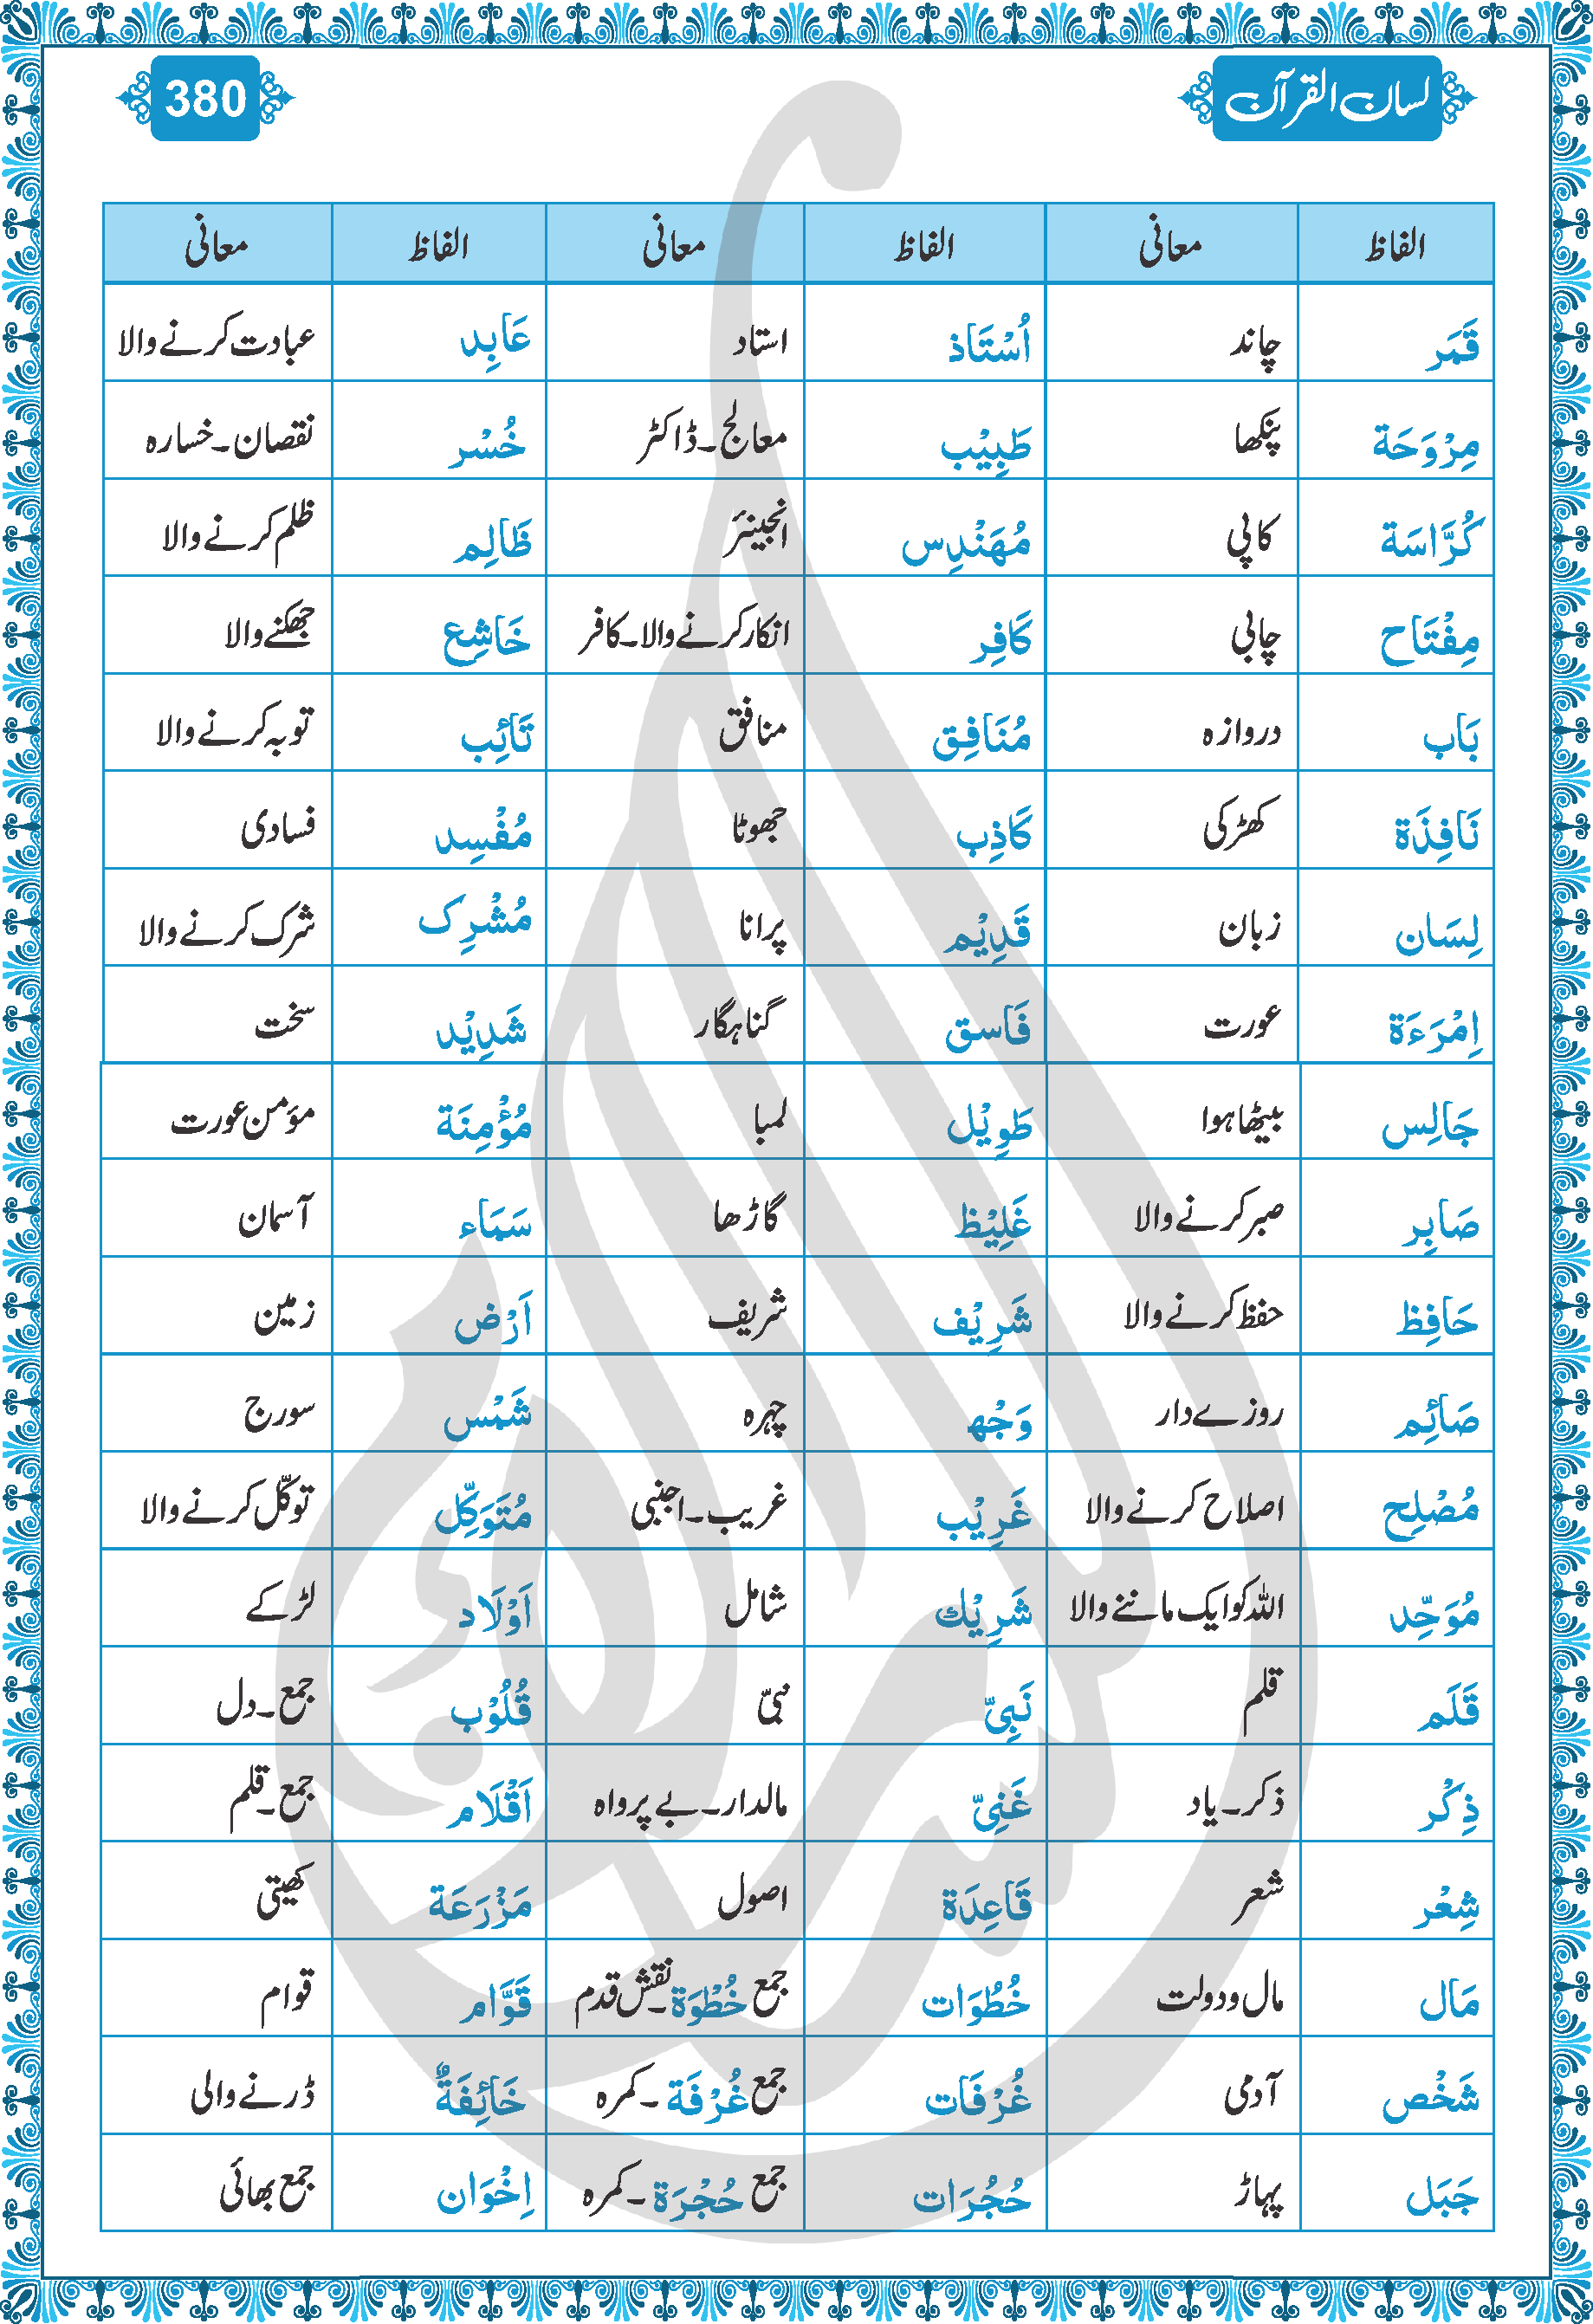 لسان القرآن
380
الفاظ معانی الفاظ معانی الفاظ معانی
قَمَر چاند اُسْتَاذ استاد عَابِد عبادت کرنے والا
مِرْوَحَة پنکھا طَبِيْب معالج۔ڈاکٹر خُسْر نقصان۔خسارہ
كُرَّاسَة کاپی مُهَنْدِس انجینئر ظَالِم ظلم کرنے والا
مِفْتَاح چابی كَافِر انکار کرنے والا۔کافر خَاشِع جھکنے والا
بَاب دروازہ مُنَافِق منافق تَائِب توبہ کرنے والا
نَافِذَة کھڑکی كَاذِب جھوٹا مُفْسِد فسادی
لِسَان زبان قَدِيْم پرانا مُشْرِک شرک کرنے والا
اِمْرَءَة عورت فَاسق گناہگار شَدِيْد سخت
جَالِس بیٹھا ہوا طَوِيْل لمبا مُؤْمِنَة مؤمن عورت
صَابِر صبر کرنے والا غَلِيْظ گاڑھا سَمَاء آسمان
حَافِظ حفظ کرنے والا شَرِيْف شریف اَرْض زمین
صَائِم روزے دار وَجْه چہرہ شَمْس سورج
مُصْلِح اصلاح کرنے والا غَرِيْب غریب۔اجنبی مُتَوَكِّل توکّل کرنے والا
مُوَحِّد اللہ کو ایک ماننے والا شَرِيْك شامل اَوْلَاد لڑکے
قَلَم قلم نَبِیّ نبیّ قُلُوْب جمع۔دل
ذِكْر ذکر۔یاد غَنِیّ مالدار۔بے پرواہ اَقْلَام جمع۔قلم
شِعْر شعر قَاعِدَة اصول مَزْرَعَة کھیتی
مَال مال و دولت خُطُوَات جمع خُطْوَة۔نقش قدم قَوَّام قوام
شَخْص آدمی غُرْفَات جمع غُرْفَة۔کمرہ خَائِفَةٌ ڈرنے والی
جَبَل پہاڑ حُجُرَات جمع حُجْرَة۔کمرہ اِخْوَان جمع بھائی